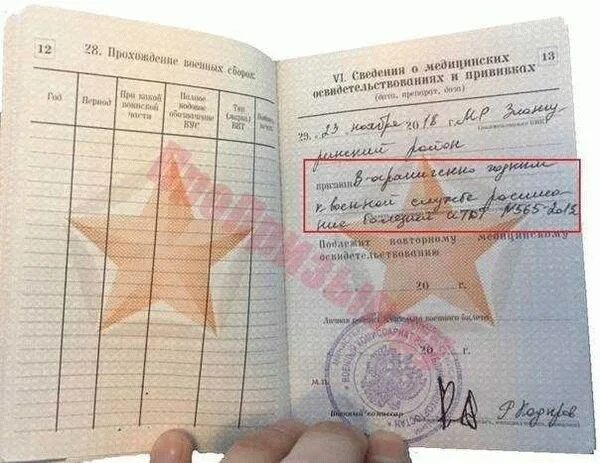 12
28. Прохождение военных сборов
Год
Период
При какой воинской части
Полное кодовое обозначение ВУС
Тип (марка) ВВТ
13
VI. Сведения о медицинских
освидетельствованиях и прививках
(дата, препарат, доза)
29. 23 ноября 2018 г. МР Зианчу
ринский район
признан В-ограниченно годным
к военной службе расписа
ние болезней и ТДТ №565-2013
Подлежит повторному медицинскому
освидетельствованию
20 г.
20 г.
М.П.
Военный комиссар
Р Кадыров